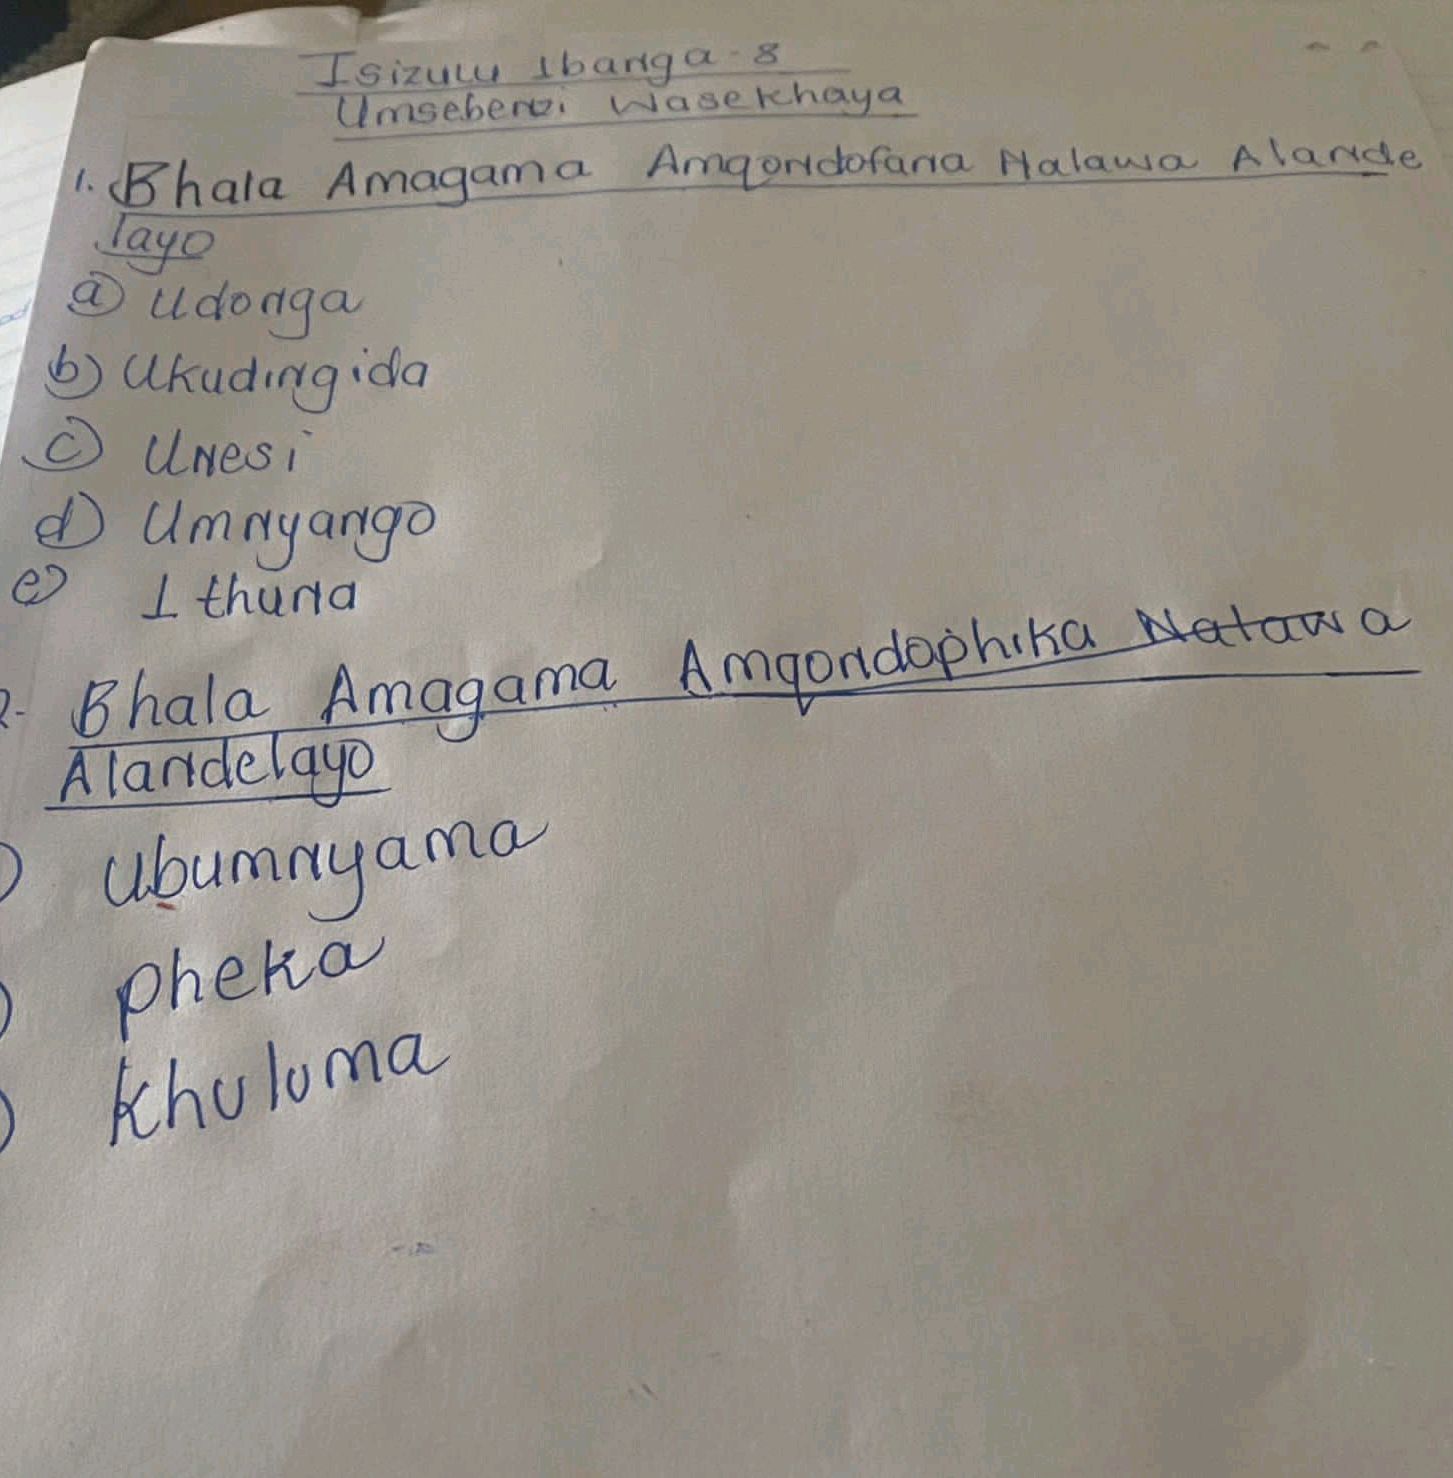 Isizulu Ibanga-8
Umsebenzi Wasekhaya
1. Bhala Amagama Amqondofana Nalawa Alande
layo
a) Udonga
b) Ukudingida
c) Unesi
d) Umnyango
e) Ithuna
2- Bhala Amagama Amqondophika Natawa
Alandelayo
) Ubumnyama
) Pheka
) Khuluma